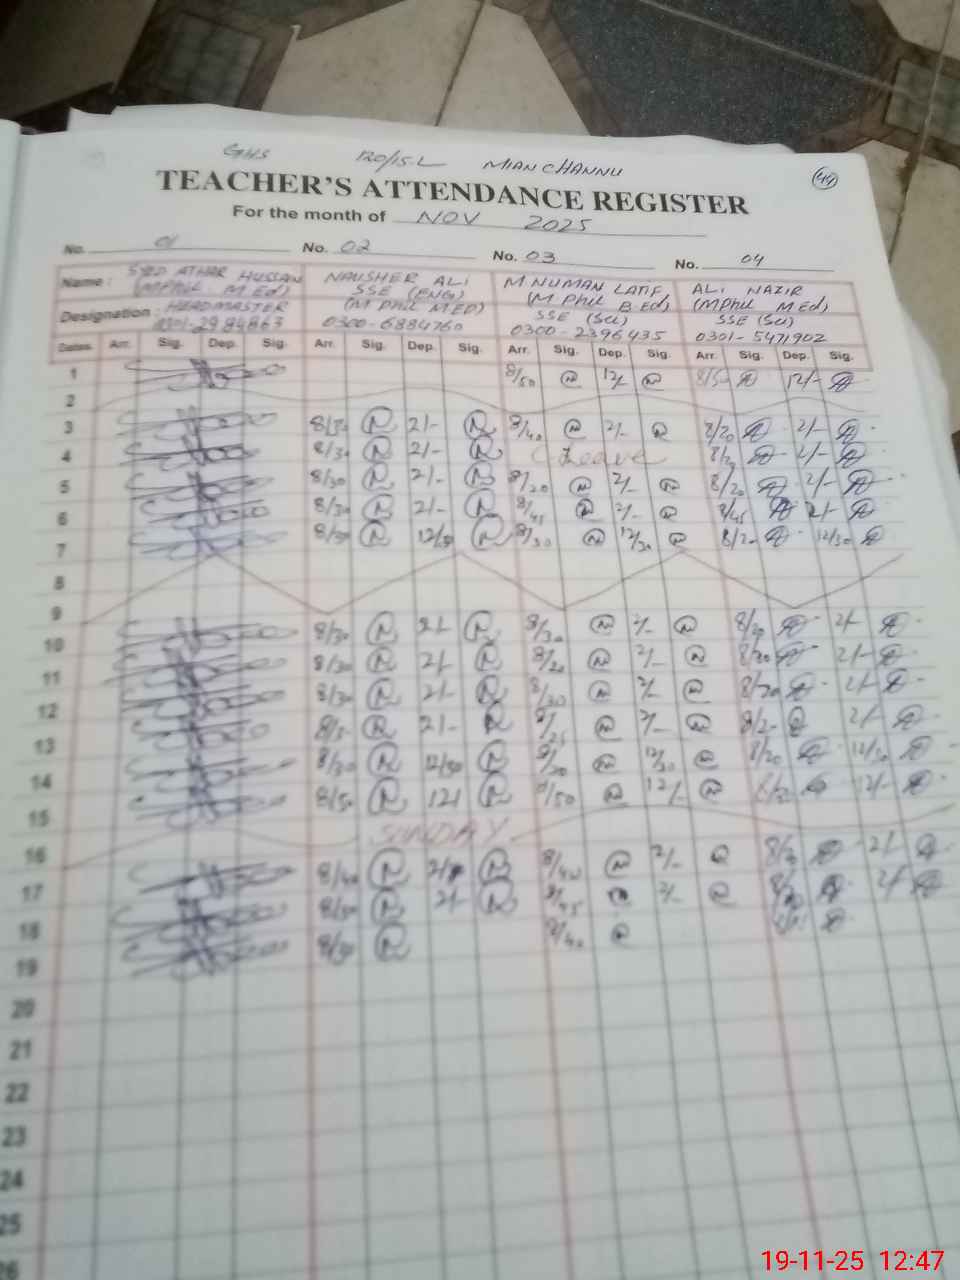 GHS 120/15-L MIAN CHANNU
44
TEACHER'S ATTENDANCE REGISTER
For the month of NOV 2025
No. 01 No. 02 No. 03 No. 04
Name : SYED ATHAR HUSSAIN NAUSHER ALI M.NUMAN LATIF ALI NAZIR
(MPhil M Ed) SSE (ENG) (M Phil B.Ed) (MPhil M Ed)
Designation : HEADMASTER (M Phil M ED) SSE (Sci) SSE (Sci)
0301-2984863 0300-6884760 0300-2396435 0301-5471902
Dates. Arr. Sig. Dep. Sig. Arr. Sig. Dep. Sig. Arr. Sig. Dep. Sig. Arr. Sig. Dep. Sig.
1 8/50 12/- 8/50 12/-
2
3 8/30 2/- 8/40 2/- 8/20 2/-
4 8/30 2/- Leave 8/20 2/-
5 8/30 2/- 8/20 2/- 8/20 2/-
6 8/30 2/- 8/45 2/- 8/45 2/-
7 8/30 12/30 8/30 12/30 8/20 12/30
8
9
10 8/30 2/- 8/30 2/- 8/20 2/-
11 8/30 2/- 8/20 2/- 8/20 2/-
12 8/30 2/- 8/30 2/- 8/20 2/-
13 2/- 8/25 2/- 2/-
14 8/30 12/30 8/20 12/30 8/20 12/30
15 8/50 12/- 8/50 12/- 12/-
SUNDAY
16
17 8/40 2/- 8/40 2/- 8/20 2/-
18 8/30 2/- 8/45 2/- 8/20 2/-
19 8/30 8/40
20
21
22
23
24
25
26
19-11-25 12:47